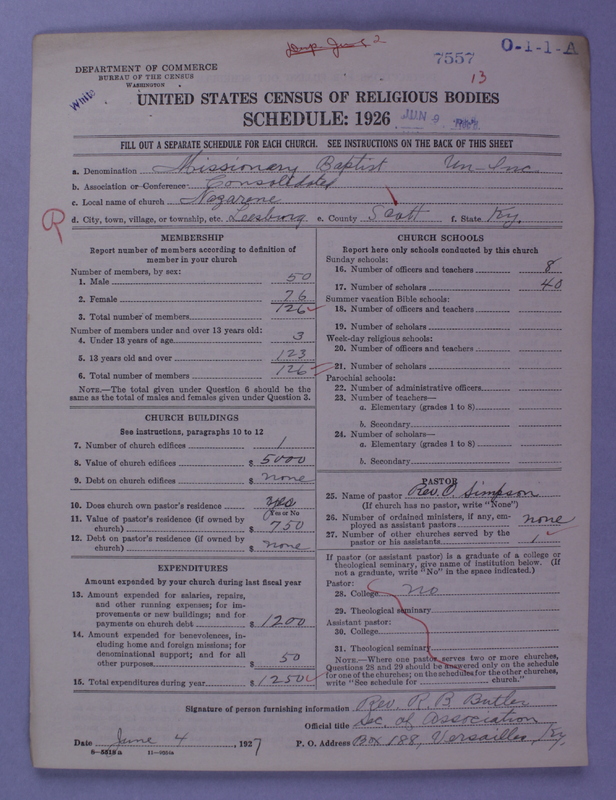 June 2
7557
O-1-1-A
13
DEPARTMENT OF COMMERCE
BUREAU OF THE CENSUS
WASHINGTON
White
UNITED STATES CENSUS OF RELIGIOUS BODIES
SCHEDULE: 1926
JUN 9
FILL OUT A SEPARATE SCHEDULE FOR EACH CHURCH. SEE INSTRUCTIONS ON THE BACK OF THIS SHEET
a. Denomination Missionary Baptist Un-Inc.
b. Association or Conference Consolidated
c. Local name of church Nazarene
R
d. City, town, village, or township, etc. Leesburg e. County Scott f. State Ky.
MEMBERSHIP
Report number of members according to definition of
member in your church
Number of members, by sex:
1. Male 50
2. Female 76
3. Total number of members 126
Number of members under and over 13 years old:
4. Under 13 years of age 3
5. 13 years old and over 123
6. Total number of members 126
NOTE.—The total given under Question 6 should be the
same as the total of males and females given under Question 3.
CHURCH BUILDINGS
See instructions, paragraphs 10 to 12
7. Number of church edifices 1
8. Value of church edifices $ 5000
9. Debt on church edifices $ none
10. Does church own pastor's residence yes
(Yes or No)
11. Value of pastor's residence (if owned by
church) $ 750
12. Debt on pastor's residence (if owned by
church) $ none
EXPENDITURES
Amount expended by your church during last fiscal year
13. Amount expended for salaries, repairs,
and other running expenses; for im-
provements or new buildings; and for
payments on church debt $ 1200
14. Amount expended for benevolences, in-
cluding home and foreign missions; for
denominational support; and for all
other purposes $ 50
15. Total expenditures during year $ 1250
CHURCH SCHOOLS
Report here only schools conducted by this church
Sunday schools:
16. Number of officers and teachers 8
17. Number of scholars 40
Summer vacation Bible schools:
18. Number of officers and teachers
19. Number of scholars
Week-day religious schools:
20. Number of officers and teachers
21. Number of scholars
Parochial schools:
22. Number of administrative officers
23. Number of teachers—
a. Elementary (grades 1 to 8)
b. Secondary
24. Number of scholars—
a. Elementary (grades 1 to 8)
b. Secondary
PASTOR
25. Name of pastor Rev. O. Simpson
(If church has no pastor, write "None")
26. Number of ordained ministers, if any, em-
ployed as assistant pastors none
27. Number of other churches served by the
pastor or his assistants 1
If pastor (or assistant pastor) is a graduate of a college or
theological seminary, give name of institution below. (If
not a graduate, write "No" in the space indicated.)
Pastor:
28. College No
29. Theological seminary
Assistant pastor:
30. College
31. Theological seminary
NOTE.—Where one pastor serves two or more churches,
Questions 28 and 29 should be answered only on the schedule
for one of the churches; on the schedules for the other churches,
write "See schedule for church."
Signature of person furnishing information Rev. R. B Butler
Official title Sec. of Association
Date June 4, 1927 P. O. Address Box 188, Versailles, Ky.